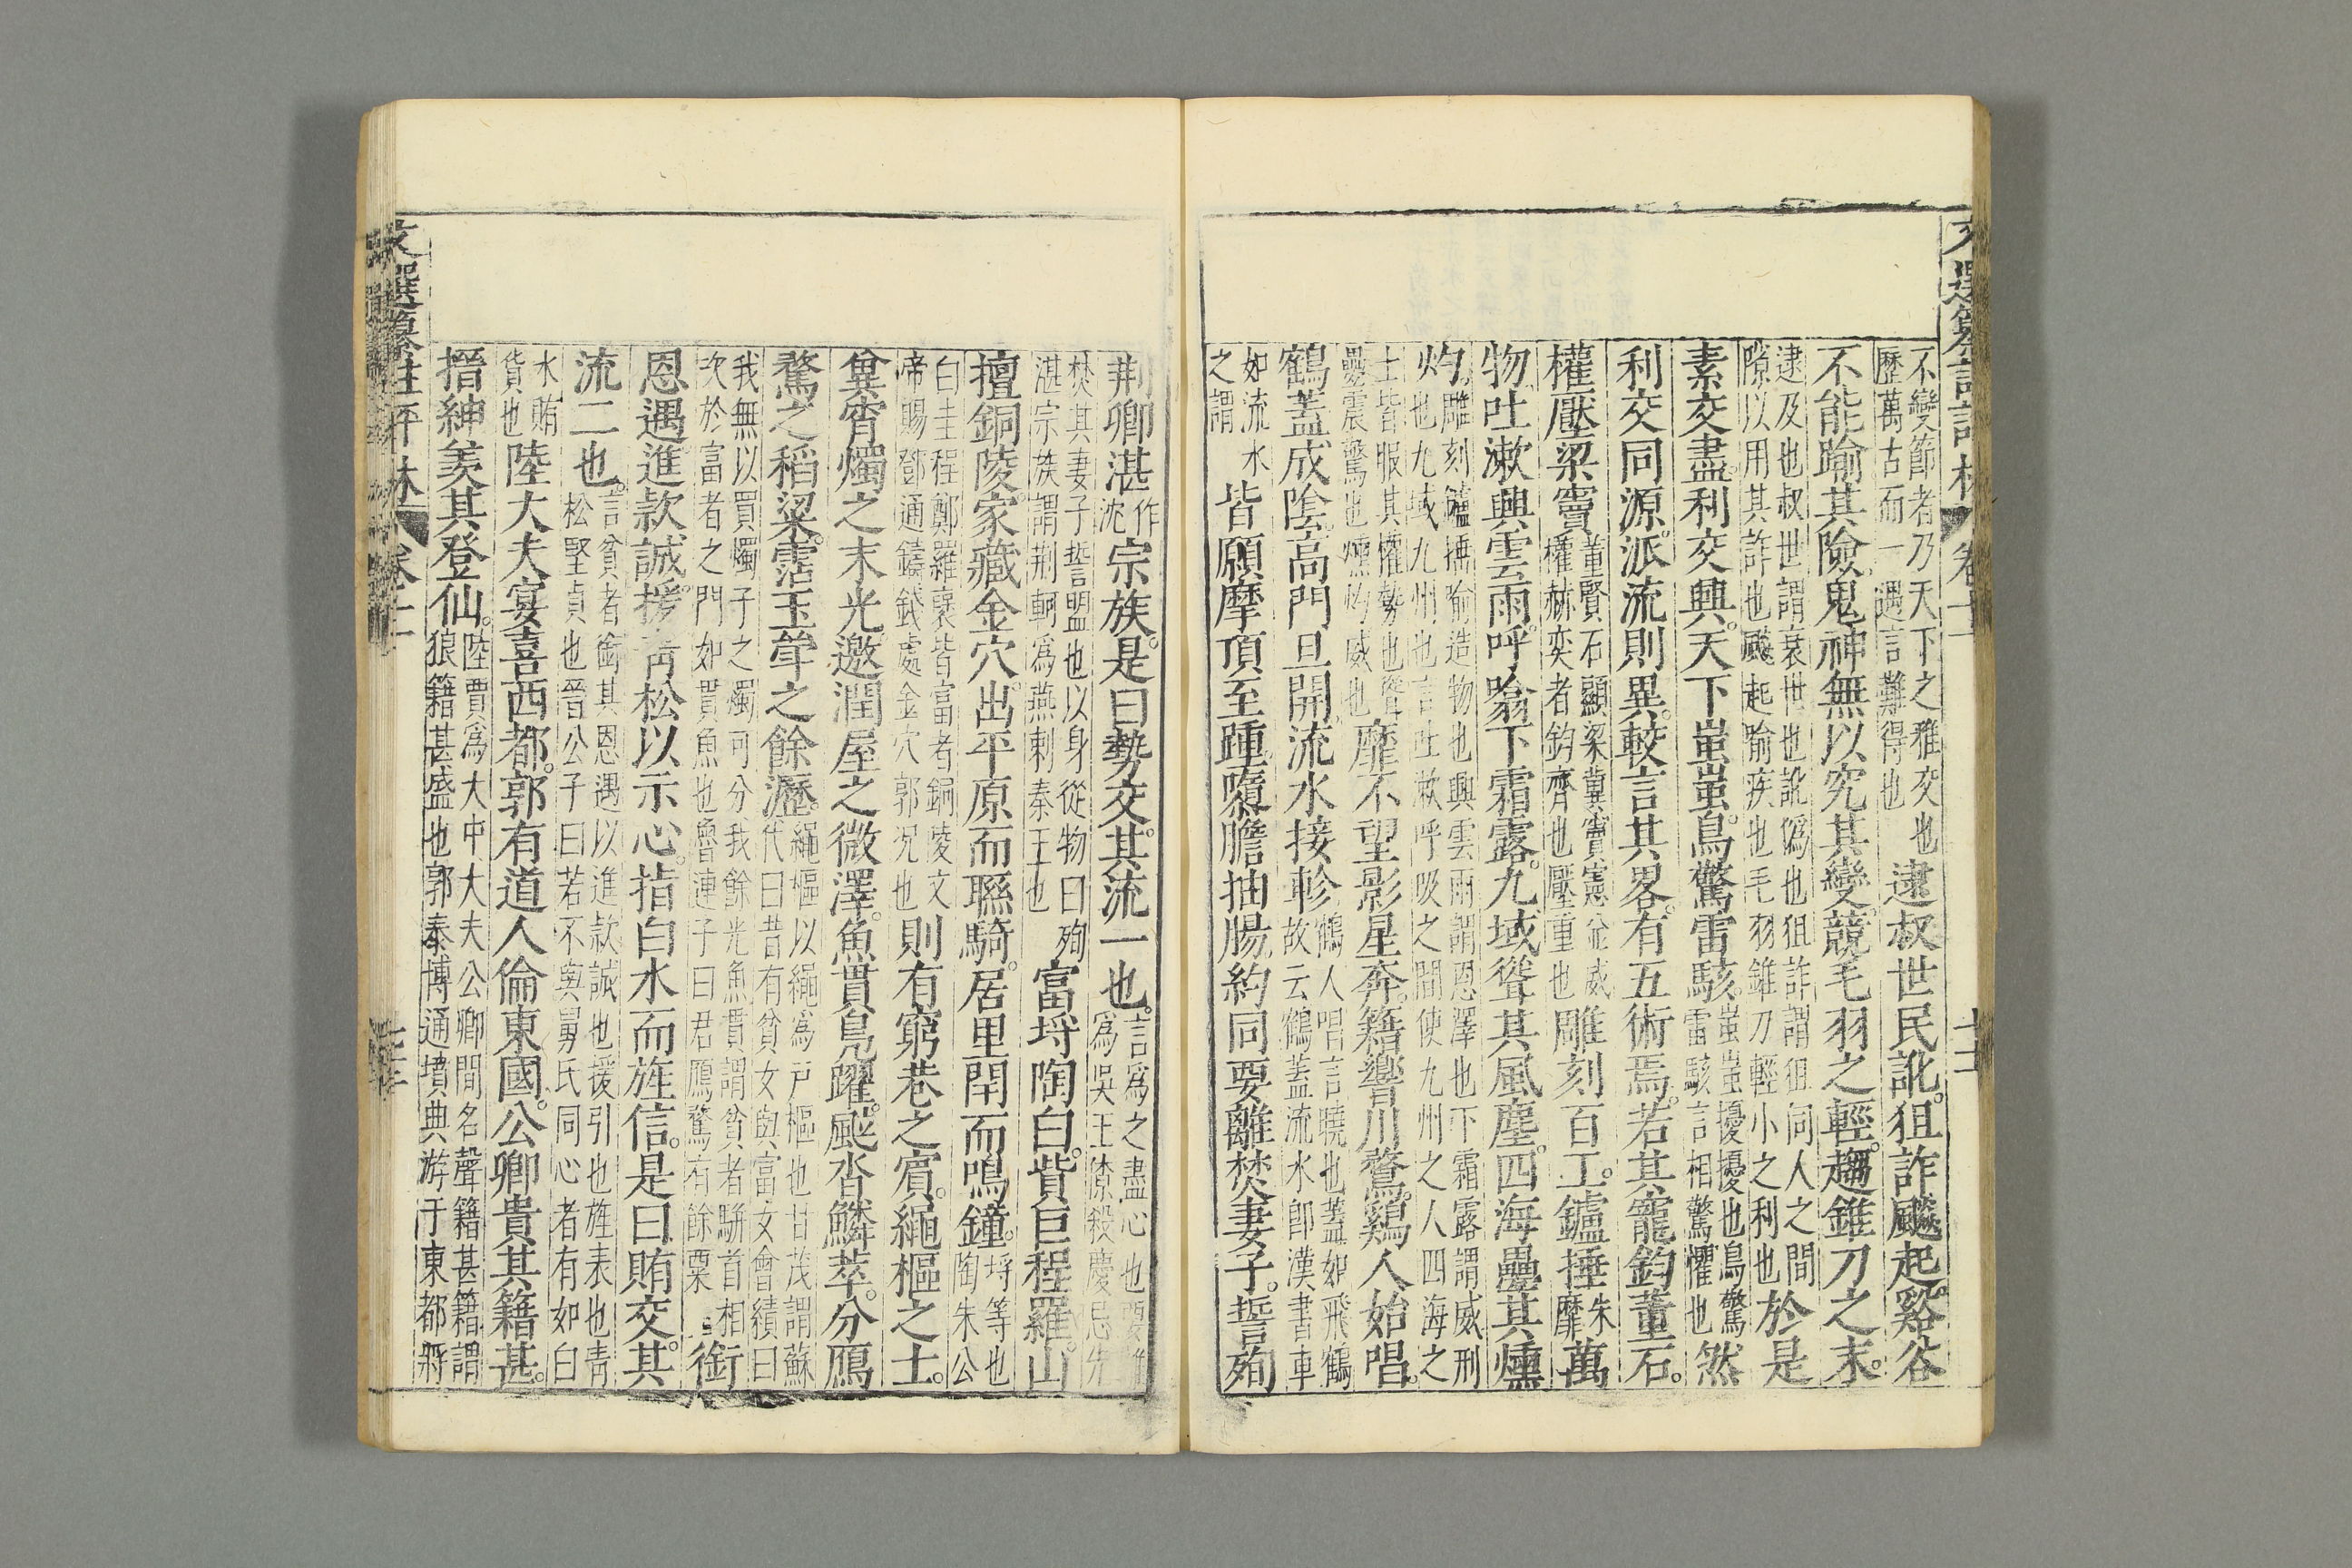 不變節者乃天下之雅交也
歷萬古而一遇言難得也
逮叔世民訛。狙詐飈起。谿谷
不能踰其險。鬼神無以究其變。競毛羽之輕。趨錐刀之末。
逮及也叔世謂衰世也訛僞也狙詐謂狙伺人之間
隙以用其詐也飈起喻疾也毛羽錐刀輕小之利也
於是
素交盡。利交興。天下蚩蚩。鳥驚雷駭。
蚩蚩擾擾也鳥驚
雷駭言相驚懼也
然
利交同源。派流則異。較言其畧。有五術焉。若其寵鈞董石。
權壓梁竇
董賢石顯梁冀竇憲並威
權赫奕者鈞齊也壓重也
雕刻百工。鑪捶
朱
靡
萬
物。吐漱興雲雨。呼噏下霜露。九域聳其風塵。四海疊其燻
灼。
雕刻鑪捶喻造物也興雲雨謂恩澤也下霜露謂威刑
火也九域九州也言吐漱呼吸之間使九州之人四海之
士皆服其權勢也聳
疊震驚也燻灼威也
靡不望影星奔。籍響川騖。鷄人始唱。
鶴蓋成陰。高門旦開。流水接軫。
鶴人唱言曉也蓋如飛鶴
故云鶴蓋流水卽漢書車
如流水
之謂
皆願摩頂至踵。隳膽抽腸。約同要離焚妻子。誓殉
荆卿湛
作
沈
宗族。是曰勢交。其流一也。
言爲之盡心也要離
爲吳王僚殺慶忌先
焚其妻子誓盟也以身從物曰殉
湛宗族謂荆軻爲燕刺秦王也
富埒陶白。貲巨程羅。山
擅銅陵。家藏金穴。出平原而聮騎。居里閈而鳴鐘。
埒等也
陶朱公
白圭程鄭羅裒皆富者銅陵文
帝賜鄧通鑄錢處金穴郭況也
則有窮巷之賓。繩樞之士。
冀宵燭之末光。邀潤屋之微澤。魚貫鳧躍。颯沓鱗萃。分鴈
鶩之稻粱。霑玉斝之餘瀝。
繩樞以繩爲戸樞也甘茂謂蘇
代曰昔有貧女與富女會績曰
我無以買燭子之燭可分我餘光魚貫謂貧者駢首相
次於富者之門如貫魚也魯連子曰君鴈鶩有餘粟
銜
恩遇。進款誠。援靑松以示心。指白水而旌信。是曰賄交。其
流二也。
言貧者銜其恩遇以進款誠也援引也旌表也靑
松堅貞也晉公子曰若不與舅氏同心者有如白
水賄
貨也
陸大夫宴喜西都。郭有道人倫東國。公卿貴其籍甚。
搢紳羨其登仙。
陸賈爲大中大夫公卿間名聲籍甚籍謂
狼籍甚盛也郭泰博通墳典游于東都將
文選纂註評林
卷十一
十二
文選纂註評林
卷十一
十三